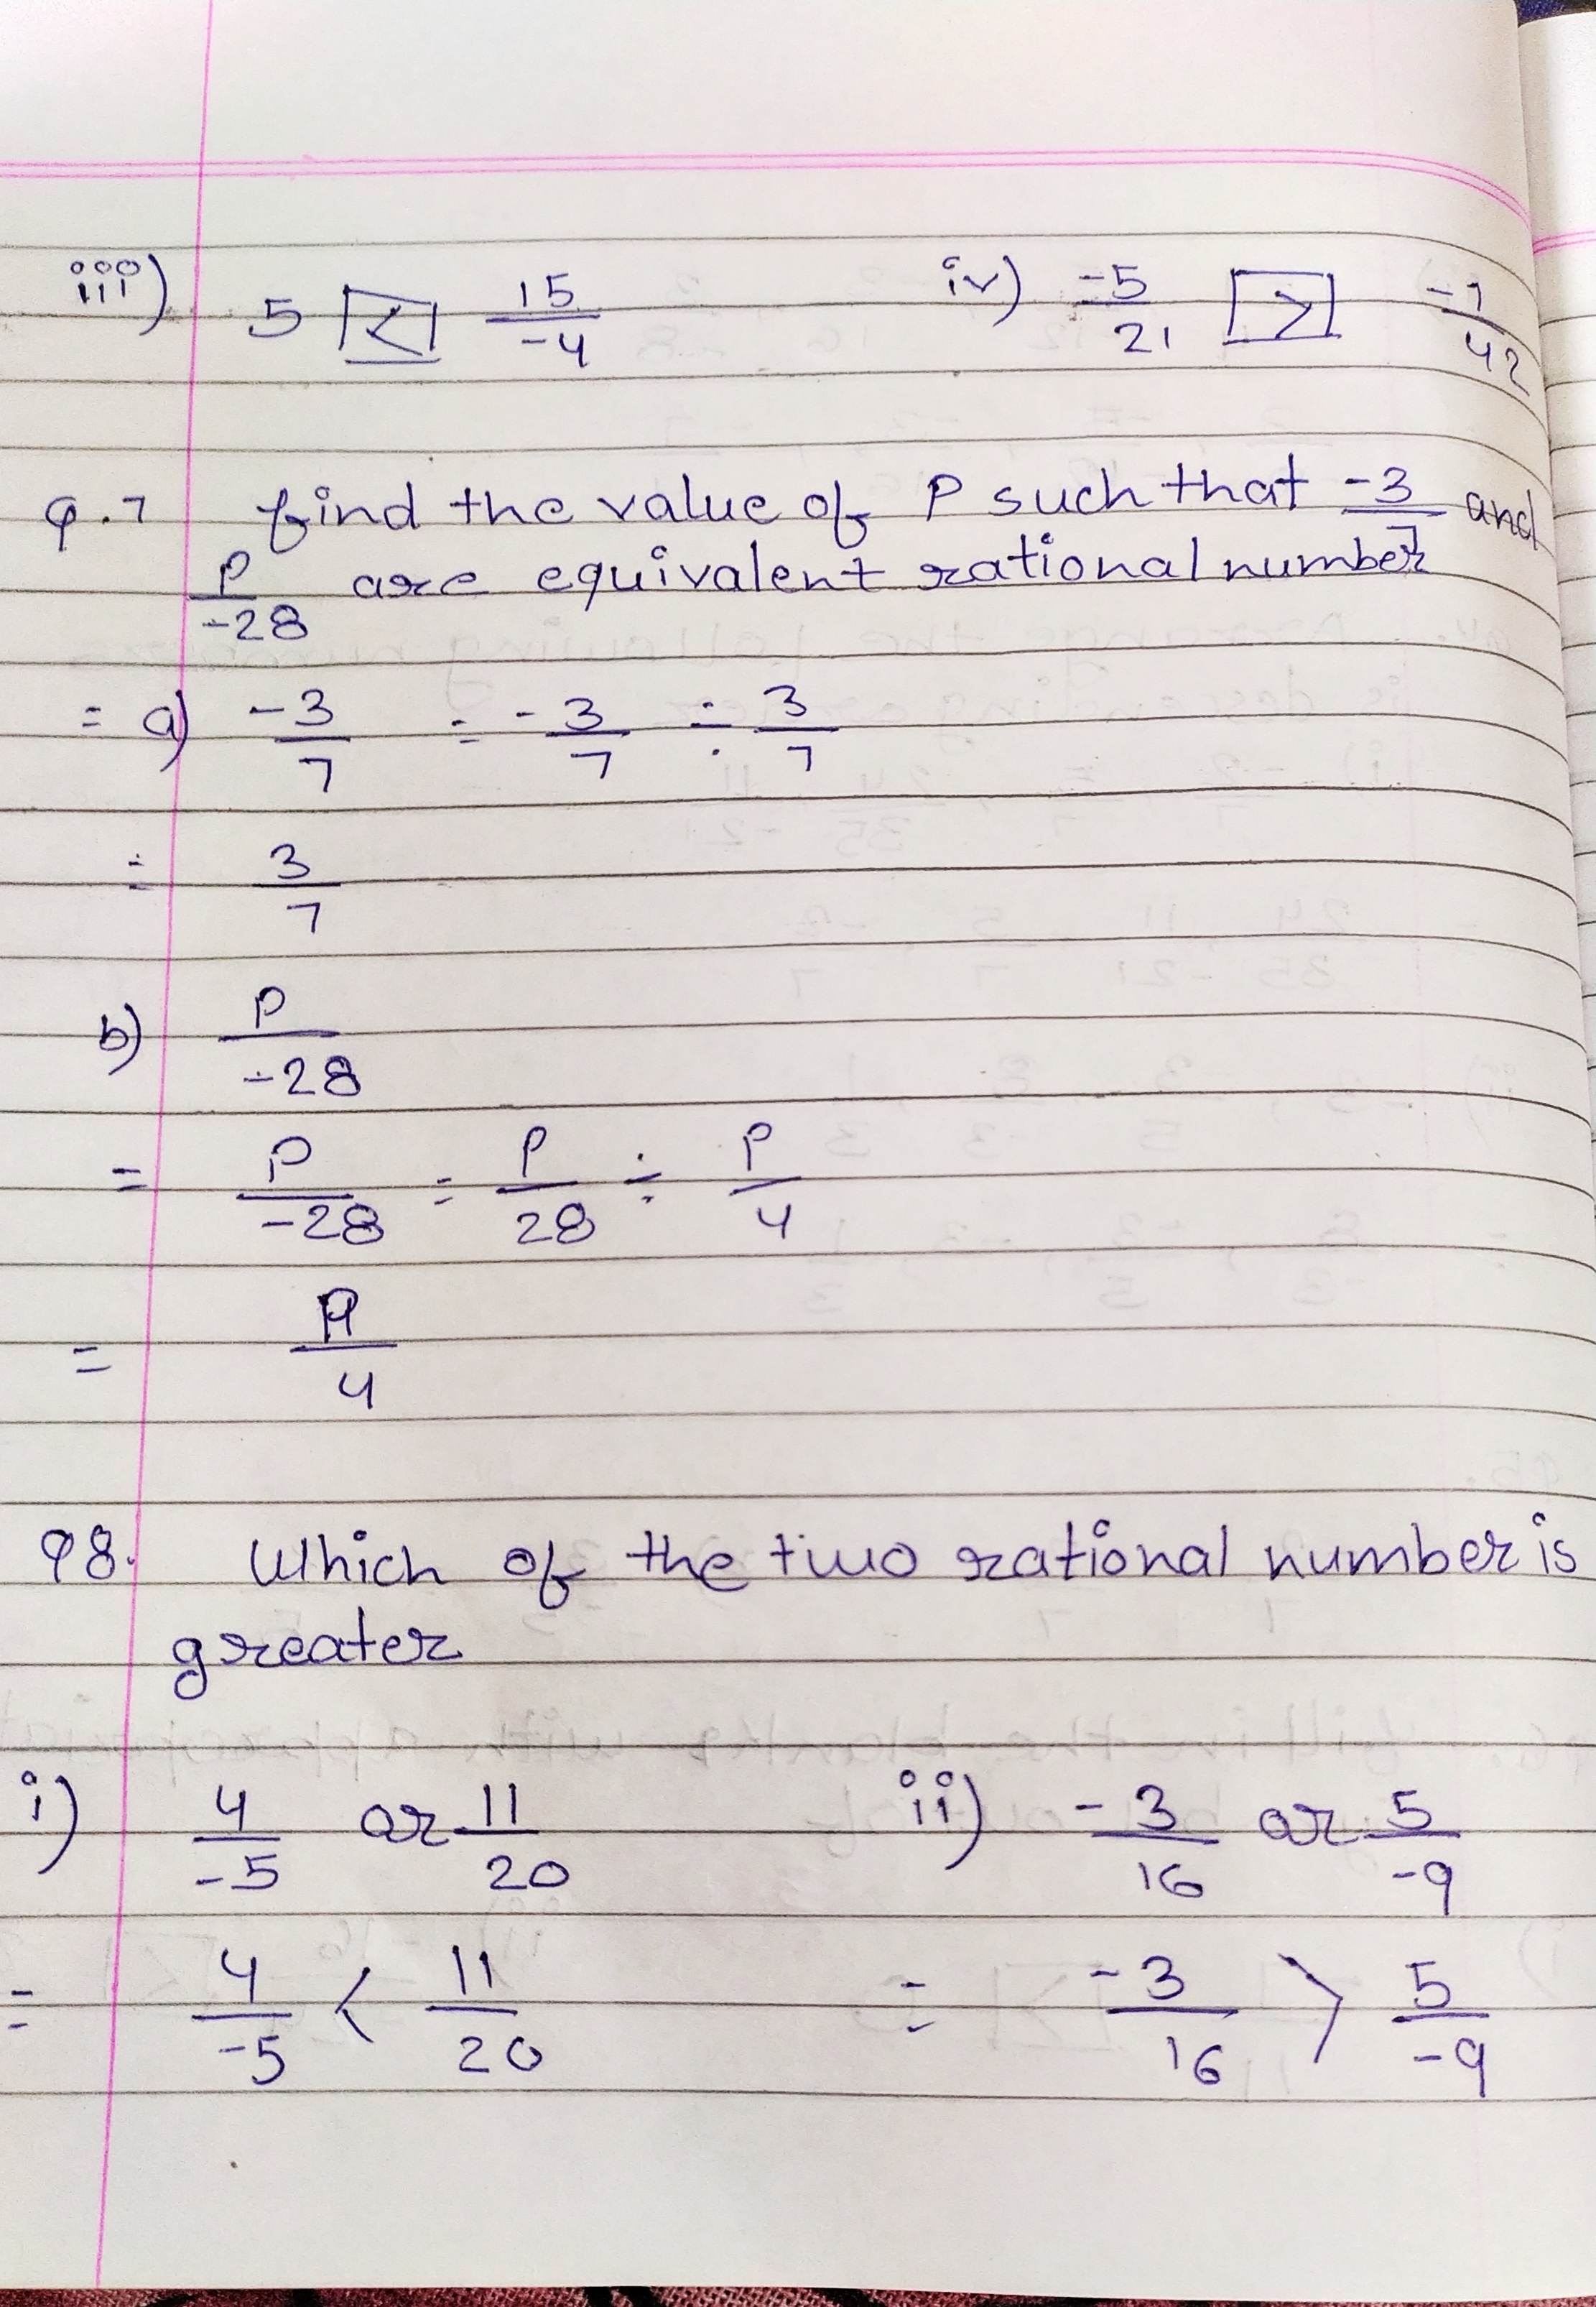 iii) 5 < 15/-4 iv) -5/21 > -1/42
Q.7 find the value of P such that -3/7 and
P/-28 are equivalent rational number
= a) -3/7 = -3/7 ÷ 3/7
= 3/7
b) P/-28
= P/-28 = P/28 ÷ P/4
= P/4
Q8. Which of the two rational number is
greater
i) 4/-5 or 11/20 ii) -3/16 or 5/-9
= 4/-5 < 11/20 = -3/16 > 5/-9